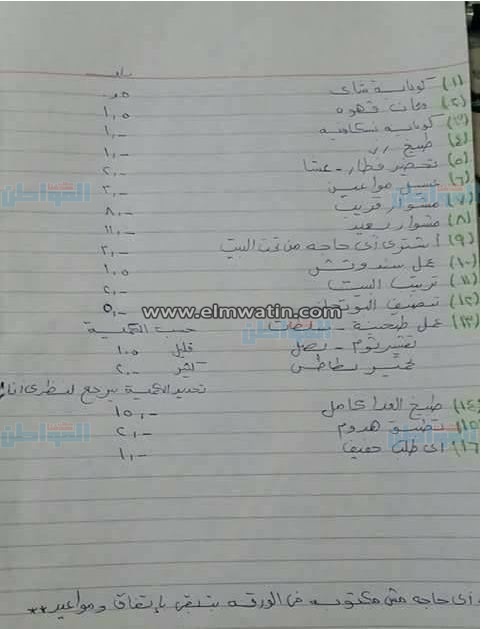 (١) كوباية شاى ٠,٥
(٢) فنجان قهوه ١,٥
(٣) كوباية نسكافيه ١,-
(٤) طبخ رز ١,-
(٥) تحضير فطار - عشا ٢,-
(٦) غسيل مواعين ٣,-
(٧) مشوار قريب ٨,-
(٨) مشوار بعيد ١١,-
(٩) أشترى أى حاجه من تحت البيت ٢,-
(١٠) عمل سندوتش ١,٥
(١١) ترتيب البيت ٢,-
(١٢) تنضيف البوتجاز ٥,-
www.elmwatin.com
(١٣) عمل طحينة - سلطات حسب الكمية
تقشير توم - بصل قليل ١,٥
بطاطس كتير ٢,-
تحديد الكمية يرجع لنظرى انا
(١٤) طبخ الغدا كامل ١٥,-
(١٥) تطبيق هدوم ٢,-
(١٦) اى طلب خفيف ١,-
أى حاجه مش مكتوبه فى الورقه بتبقى بإتفاق و مواعيد **
المواطن
المواطن
المواطن
المواطن